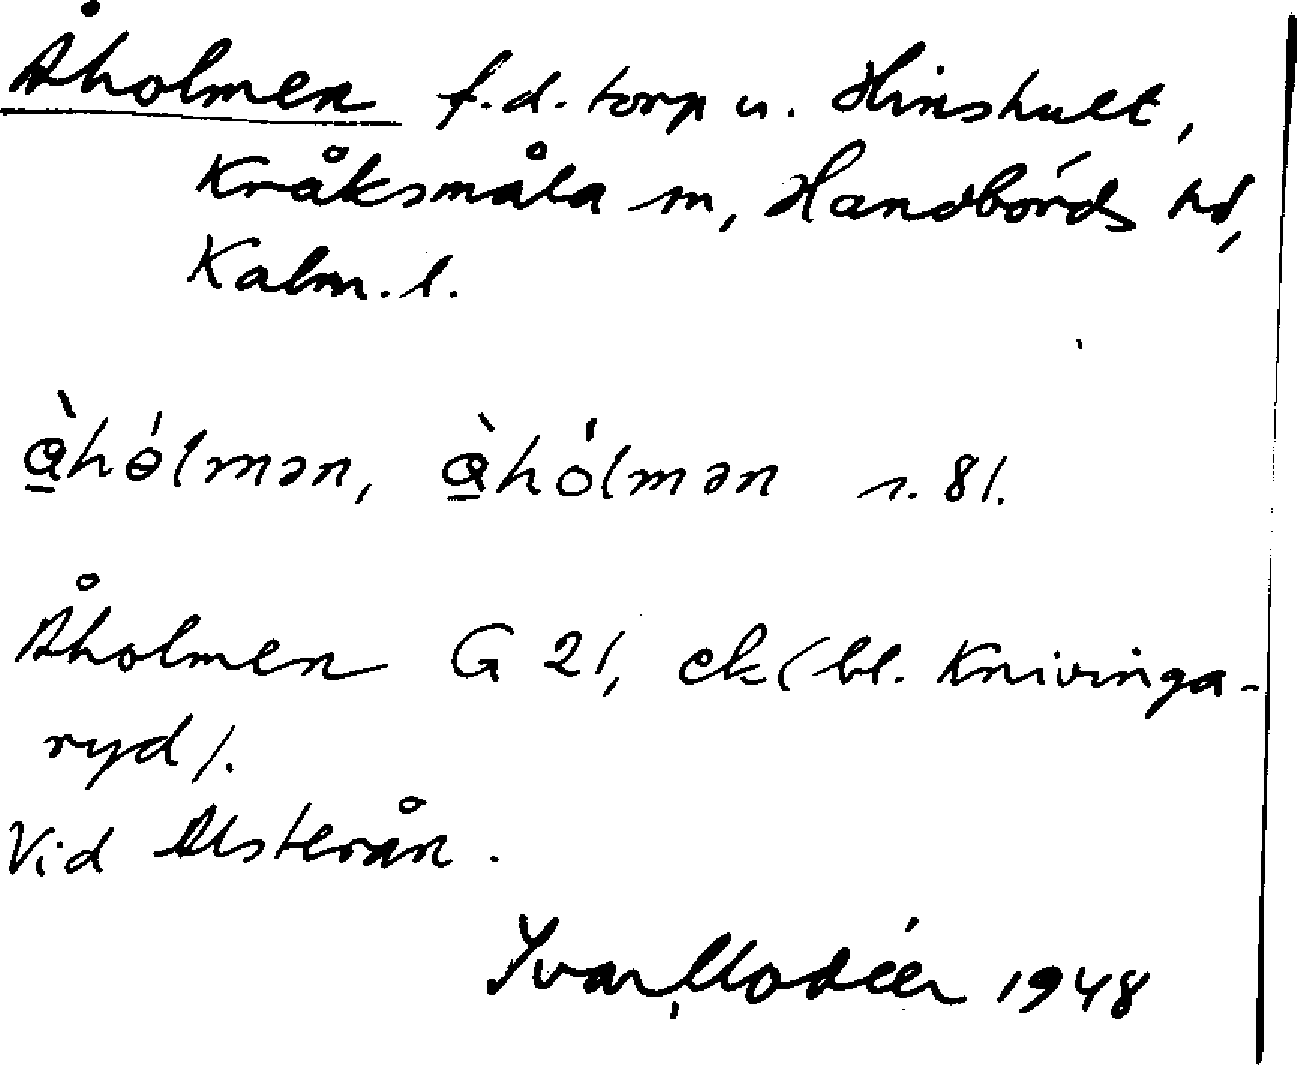 Åholmen f.d. torp u. Hinshult,
Kråksmåla sn, Handbörds hd,
Kalm. l.
hólmən, hólmən s. 81.
Åholmen G 21, ek (bl. Knivinga-
ryd).
Vid Alsterån.
Ivar Modéer 1948